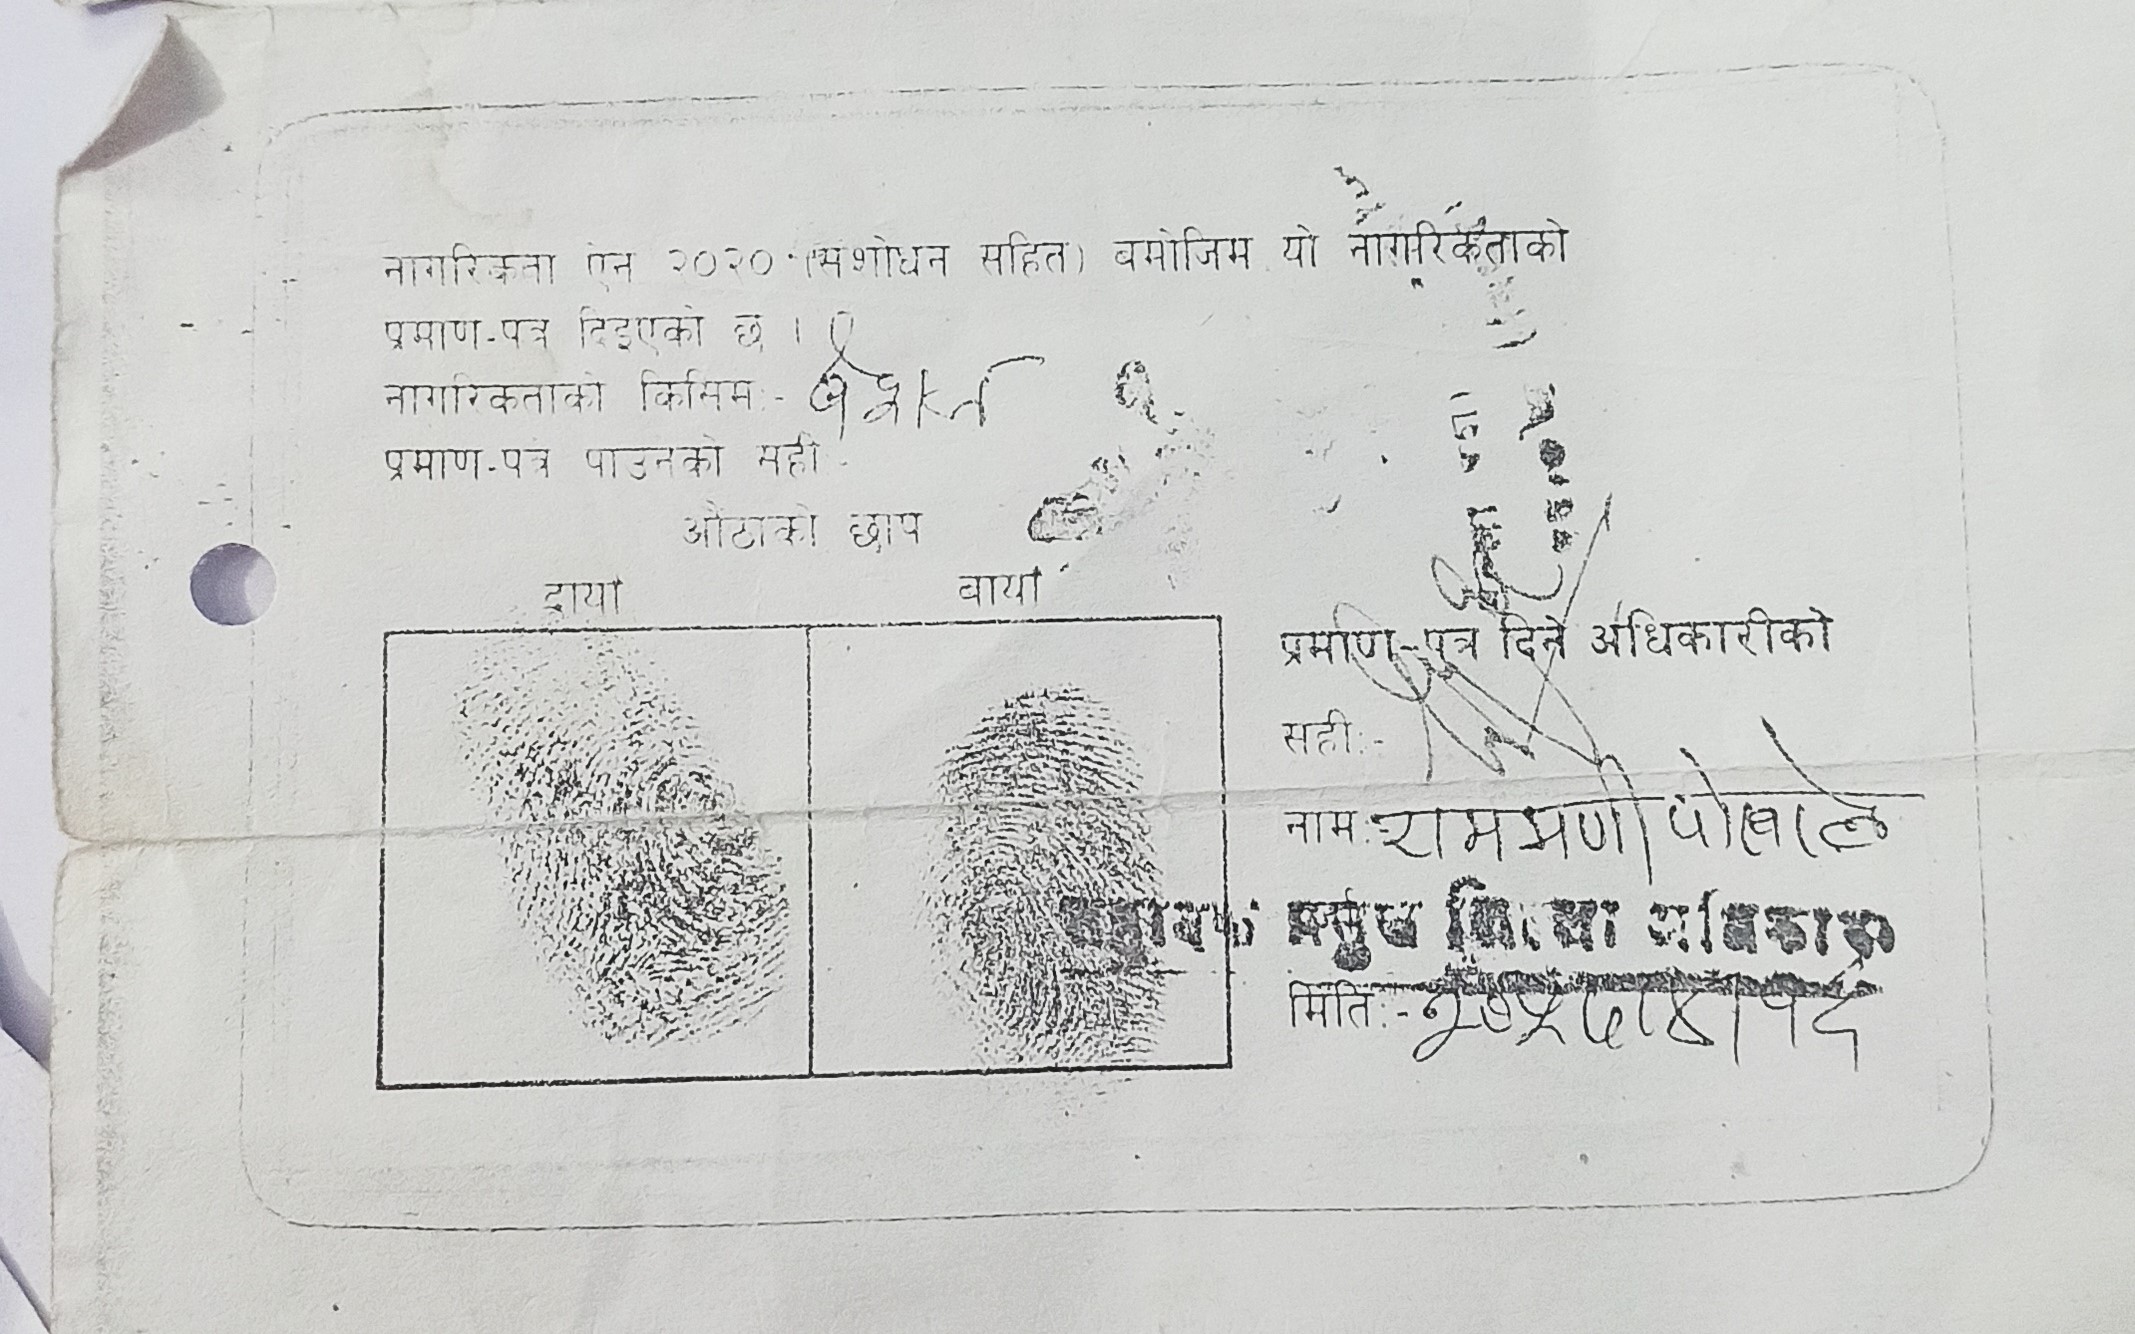 नागरिकता ऐन २०२० (संशोधन सहित) बमोजिम यो नागरिकताको
प्रमाण-पत्र दिइएको छ ।
नागरिकताको किसिम:-
प्रमाण-पत्र पाउनेको सही
औंठाको छाप
दायाँ बायाँ
प्रमाण-पत्र दिने अधिकारीको
सही:-
नाम: राममणी पोखरेल
प्रमुख जिल्ला अधिकारी
मिति:-